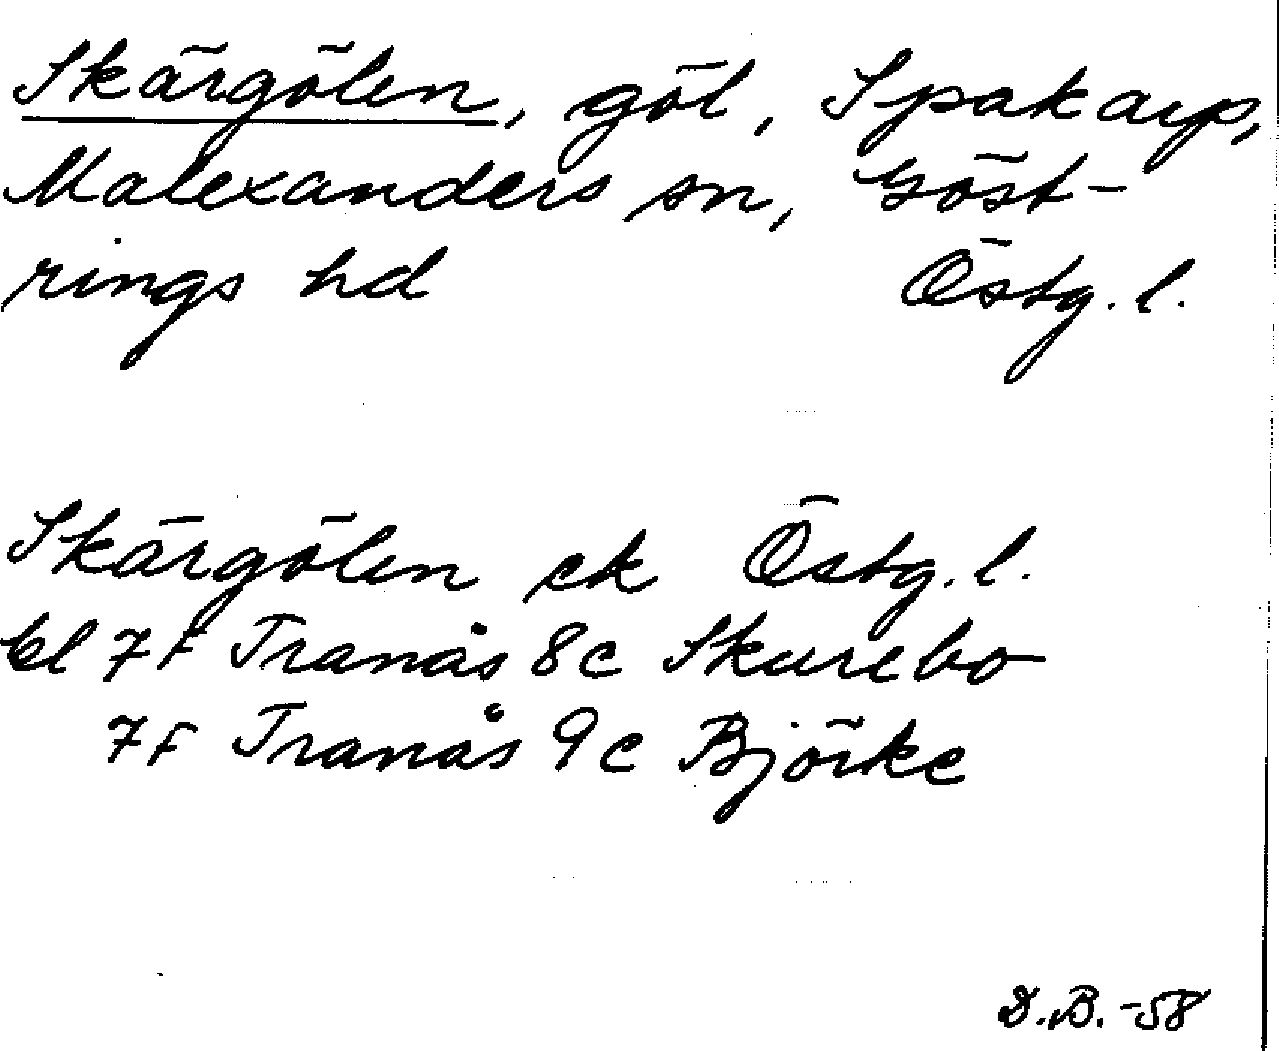 Skärgölen, göl, Spakarp,
Malexanders sn, Göst-
rings hd Östg. l.
Skärgölen ek Östg. l.
bl 7F Tranås 8c Skurebo
7F Tranås 9c Björke
D.B. -58